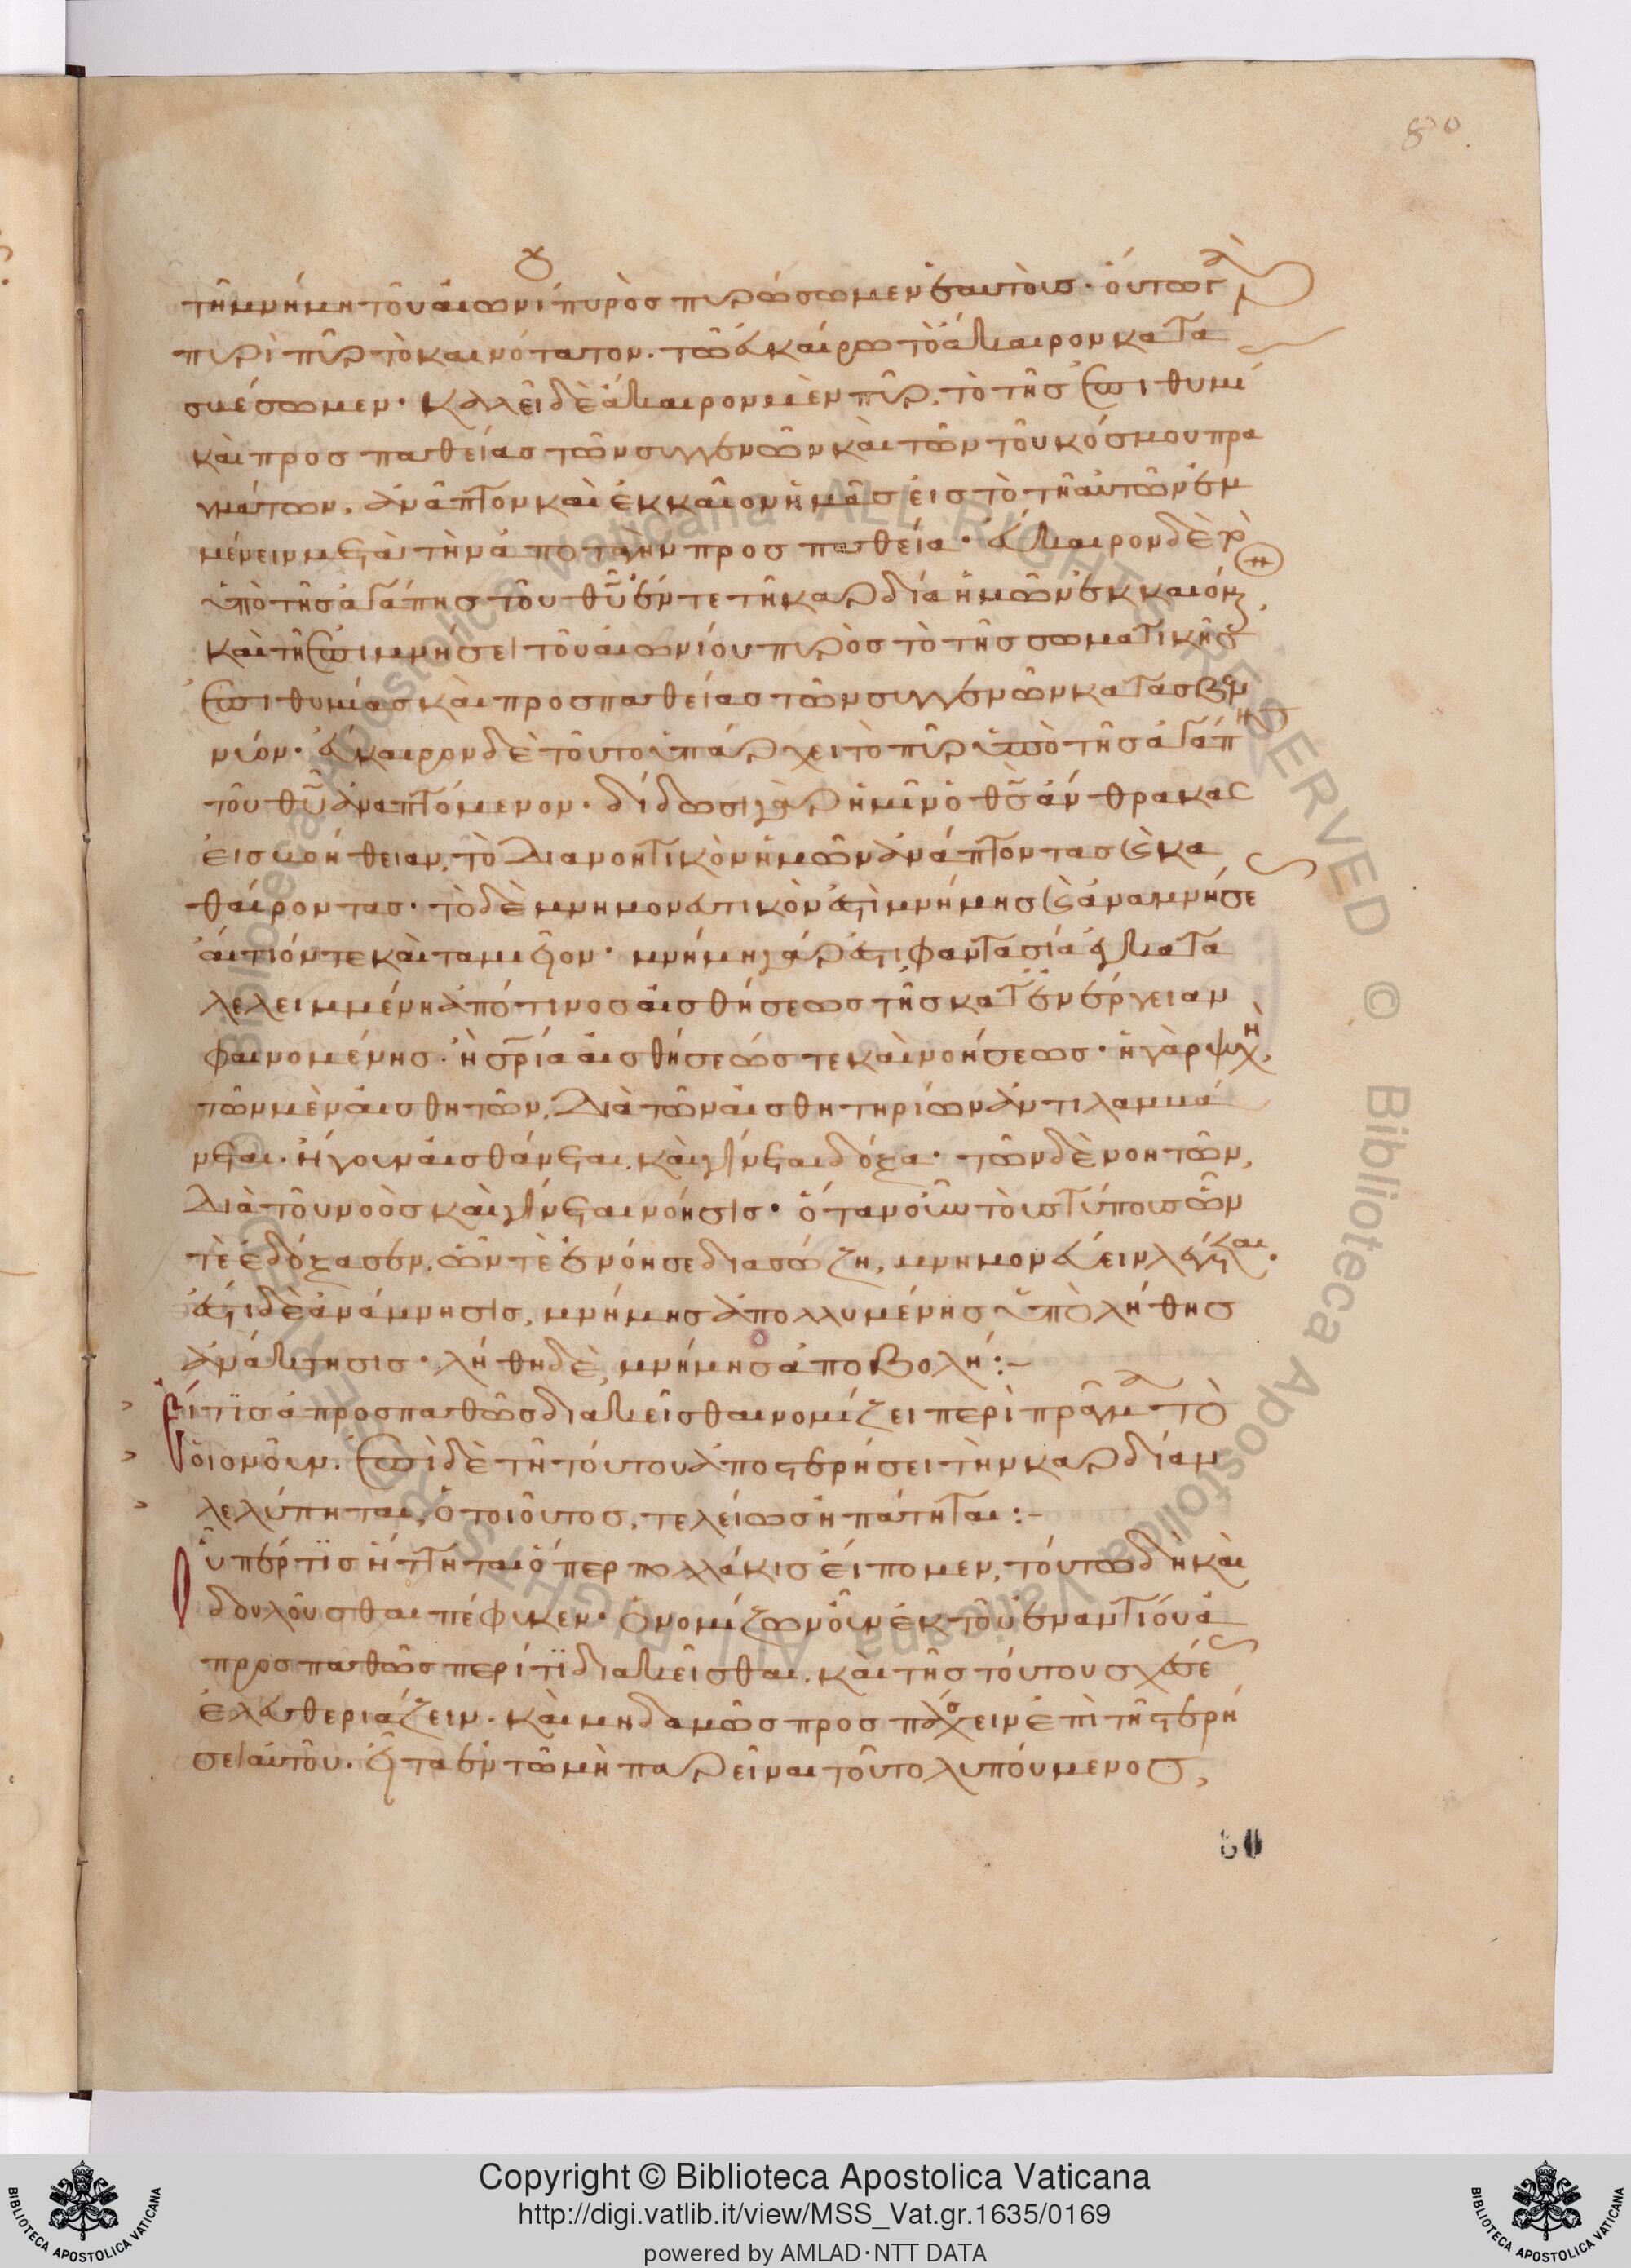 80.
τῆ μνήμη τοῦ αἰωνίου πυρὸς πυρώσωμεν ἑαυτοὺς· οὕτω γὰρ
πυρὶ πῦρ τὸ καινότατον. τῶ εὐκαίρω τὸ ἄκαιρον κατα
σβέσωμεν· καλεῖ δὲ ἄκαιρον μὲν πῦρ, τὸ τῆς ἐπιθυμί
καὶ προσπαθείας τῶν συγγενῶν καὶ τῶν τοῦ κόσμου πρα
γμάτων, ἀνάπτον καὶ ἐκκαῖον ἡμᾶς εἰς τὸ τῆ αὐτῶν ἐμ
μένειν μετὰ τὴν ἀποταγὴν προσπαθεία· εὔκαιρον δὲ τὸ
ὑπὸ τῆς ἀγάπης τοῦ θῦ ἔν τε τῆ καρδία ἡμῶν ἐκκαιόμενον,
καὶ τῆ ἐπιμνήσει τοῦ αἰωνίου πυρὸς τὸ τῆς σωματικῆς
ἐπιθυμίας καὶ προσπαθείας τῶν συγγενῶν κατασβεν
νύον· εὔκαιρον δὲ τοῦτο ὑπάρχει τὸ πῦρ ὑπὸ τῆς ἀγάπης
τοῦ θῦ ἀναπτόμενον· δίδωσι γὰρ ἡμῖν ὁ θς ἄνθρακας
εἰς βοήθειαν, τὸ διανοητικὸν ἡμῶν ἀνάπτοντας καὶ κα
θαίροντας· τὸ δὲ μνημονευτικὸν ἐστὶ μνήμης καὶ ἀναμνήσε
αἴτιόν τε καὶ ταμεῖον· μνήμη γάρ ἐστι φαντασία ἐγκατα
λελειμμένη ἀπό τινος αἰσθήσεως τῆς κατ' ἐνέργειαν
φαινομένης· ἢ σωρία αἰσθήσεώς τε καὶ νοήσεως· ἡ γὰρ ψυχὴ,
τῶν μὲν αἰσθητῶν, διὰ τῶν αἰσθητηρίων ἀντιλαμβά
νεται. ἤγουν αἰσθάνεται, καὶ γίνεται δόξα· τῶν δὲ νοητῶν,
διὰ τοῦ νοὸς καὶ γίνεται νόησις· ὅταν οὖν τοὺς τύπους ὧν
τὲ ἐδόξασεν, ὧν τὲ ἐνόησε διασώζη, μνημονεύειν λέγεται.
ἐστὶ δὲ ἀνάμνησις, μνήμης ἀπολλυμένης ὑπὸ λήθης
ἀνάκτησις· λήθη δὲ, μνήμης ἀποβολή:–
Εἴ τις ἀπροσπαθῶς διακεῖσθαι νομίζει περὶ πρᾶγμα τὸ
οἱονοῦν. ἐπὶ δὲ τῆ τούτου ἀποστερήσει τὴν καρδίαν
λελύπηται, ὁ τοιοῦτος, τελείως ἠπάτηται:–
Οὗπέρ τις ἥττηται ὅπερ πολλάκις εἴπομεν, τούτω δὴ καὶ
δουλοῦσθαι πέφυκεν. ὁ νομίζων οὖν ἐκ τοῦ ἐναντίου ἀ
προσπαθῶς περί τι διακεῖσθαι, καὶ τῆς τούτου σχέσε
ἐλευθεριάζειν. καὶ μηδαμῶς προσπάσχειν ἐπὶ τῆ στερή
σει αὐτοῦ. εἶτα ἐν τῶ μὴ παρεῖναι τοῦτο λυπούμενος,
80
Copyright © Biblioteca Apostolica Vaticana
http://digi.vatlib.it/view/MSS_Vat.gr.1635/0169
powered by AMLAD·NTT DATA